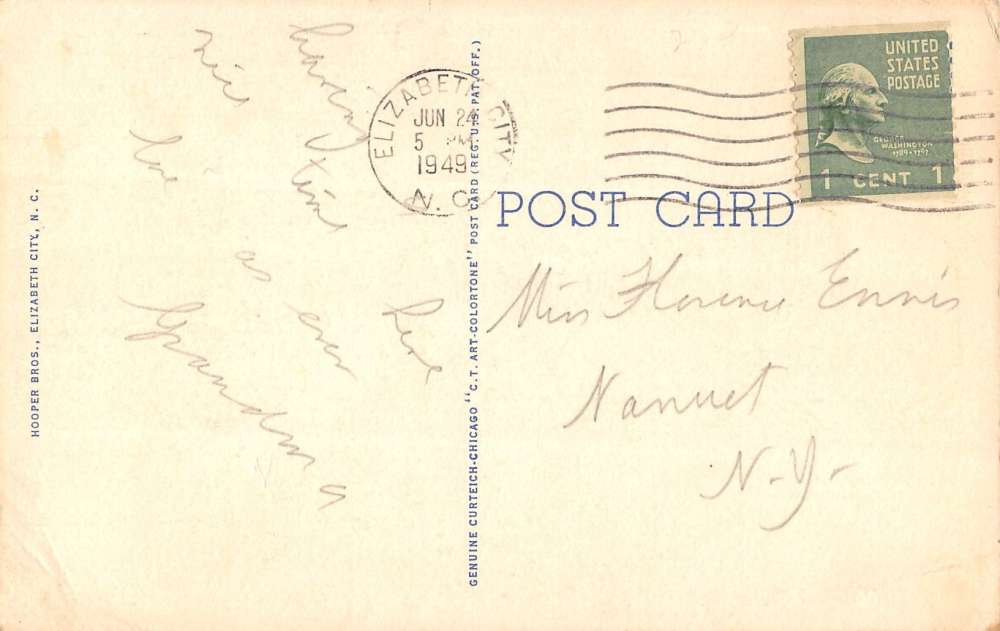 having
nice time here
love as ever
Grandma
HOOPER BROS., ELIZABETH CITY, N. C.
GENUINE CURTEICH-CHICAGO "C.T. ART-COLORTONE" POST CARD (REG. U.S. PAT. OFF.)
ELIZABETH CITY
JUN 24
5 PM
1949
N. C.
UNITED
STATES
POSTAGE
GEORGE
WASHINGTON
1789-1797
1 CENT 1
POST CARD
Miss Florence Ennis
Nanuet
N.Y.